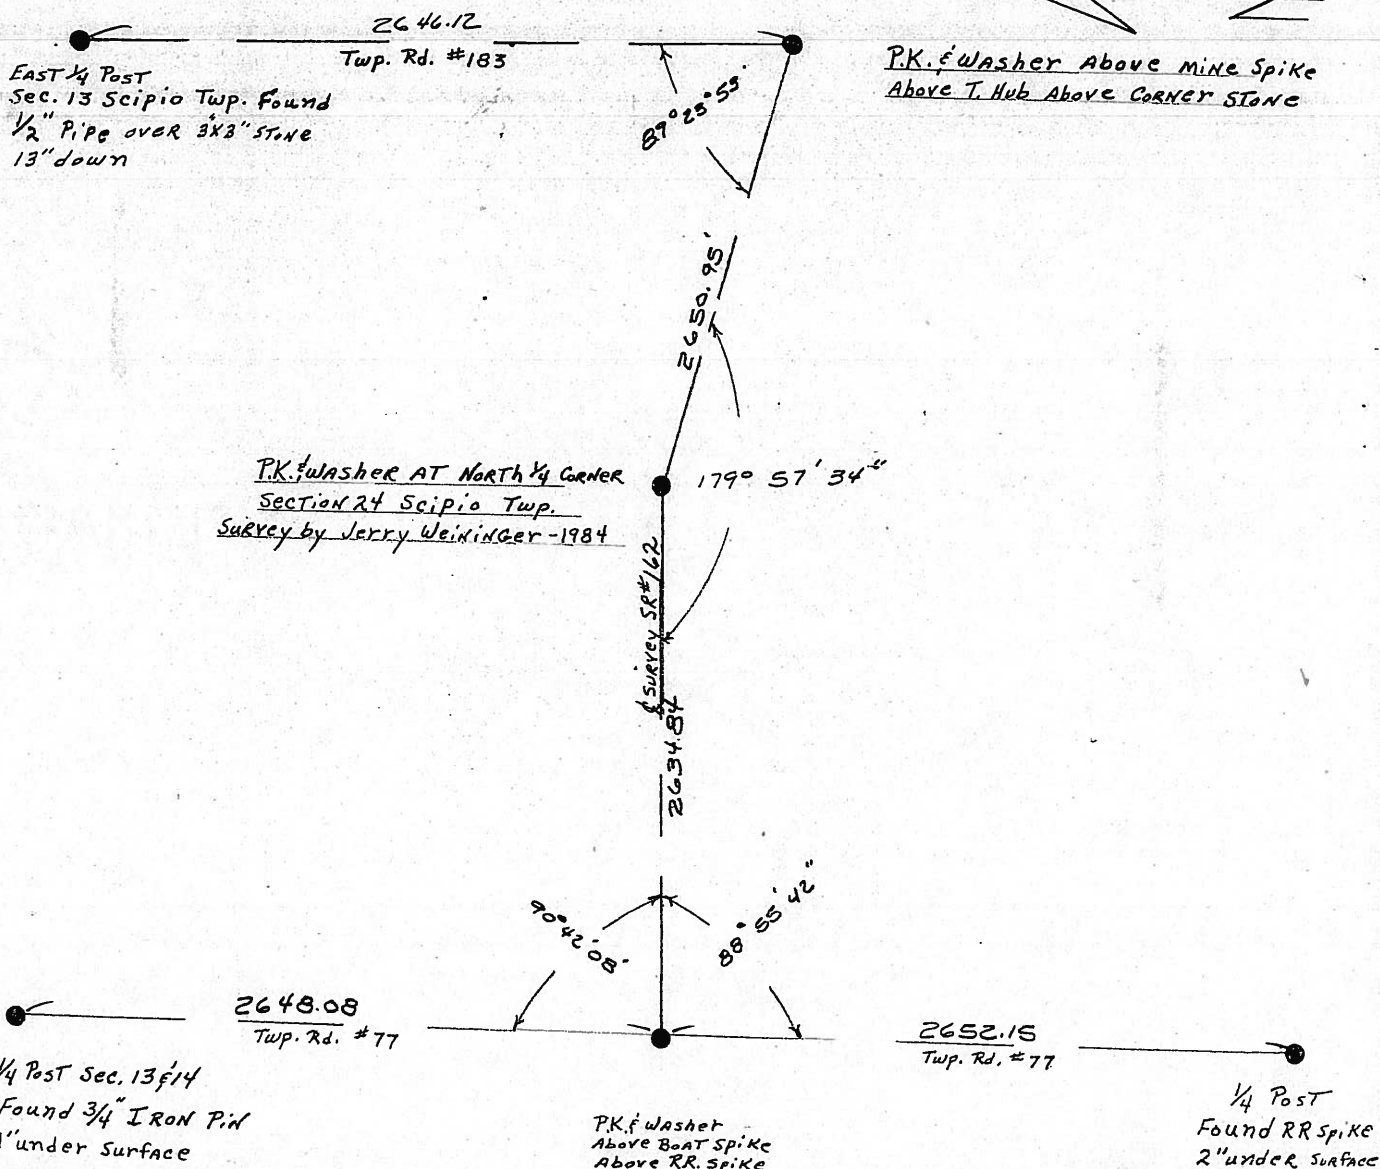 2646.12
Twp. Rd. #183
EAST 1/4 POST
Sec. 13 Scipio Twp. Found
1/2" Pipe over 3"x3" STONE
13" down
P.K. & WASHER Above MINE SPIKE
Above T. Hub Above CORNER STONE
89° 25' 53"
2650.95'
P.K. & WASHER AT NORTH 1/4 CORNER
SECTION 24 Scipio Twp.
Survey by Jerry Weininger - 1984
179° 57' 34"
& SURVEY SR#162
2634.84
90° 42' 08"
88° 55' 42"
2648.08
Twp. Rd. #77
2652.15
Twp. Rd. #77
1/4 POST Sec. 13 & 14
Found 3/4" IRON PIN
1" under Surface
P.K. & WASHER
Above BOAT SPIKE
Above RR. SPIKE
1/4 POST
Found RR SPIKE
2" under SURFACE